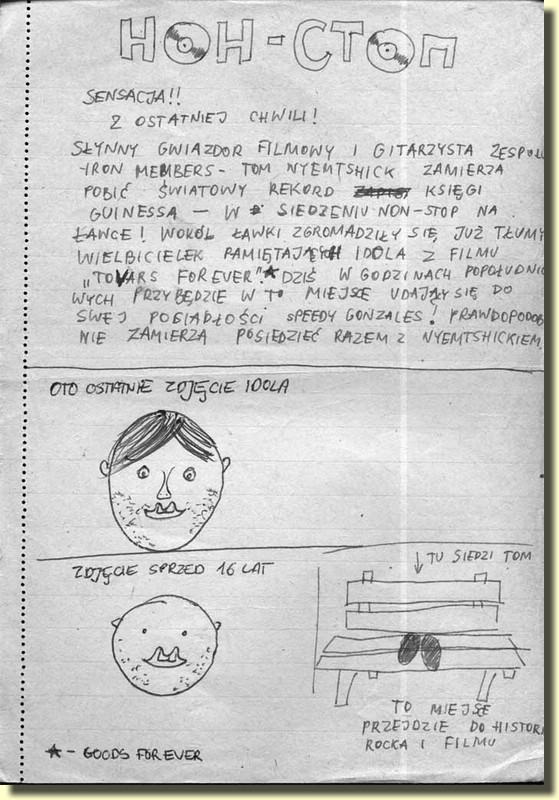 НОН-СТОП
SENSACJA!!
Z OSTATNIEJ CHWILI!
SŁYNNY GWIAZDOR FILMOWY I GITARZYSTA ZESPOŁU
IRON MEMBERS - TOM NYEMTSHICK ZAMIERZA
POBIĆ ŚWIATOWY REKORD KSIĘGI
GUINESSA — W SIEDZENIU NON-STOP NA
ŁAWCE! WOKÓŁ ŁAWKI ZGROMADZIŁY SIĘ JUŻ TŁUMY
WIELBICIELEK PAMIĘTAJĄCYCH IDOLA Z FILMU
„TOVARS FOREVER".★ DZIŚ W GODZINACH POPOŁUDNIO
WYCH PRZYBĘDZIE W TO MIEJSCE UDAJĄŁY SIĘ DO
SWEJ POSIADŁOŚCI SPEEDY GONZALES! PRAWDOPODOB
NIE ZAMIERZA POSIEDZIEĆ RAZEM Z NYEMTSHICKIEM.
OTO OSTATNIE ZDJĘCIE IDOLA
ZDJĘCIE SPRZED 16 LAT
↓ TU SIEDZI TOM
TO MIEJSCE
PRZEJDZIE DO HISTORI
ROCKA I FILMU
★ - GOODS FOREVER